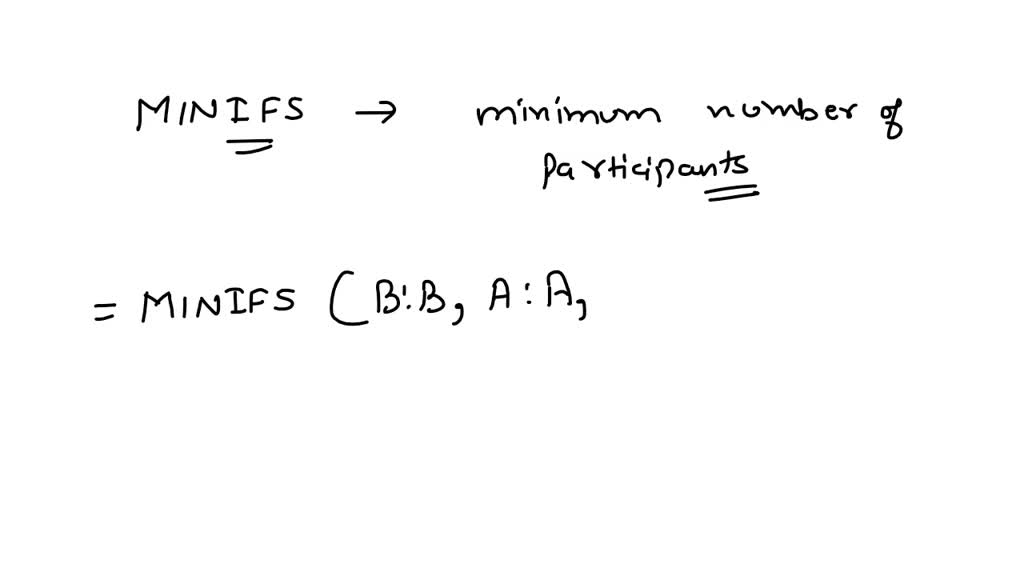 MINIFS → minimum number of
participants
= MINIFS ( B:B, A:A,